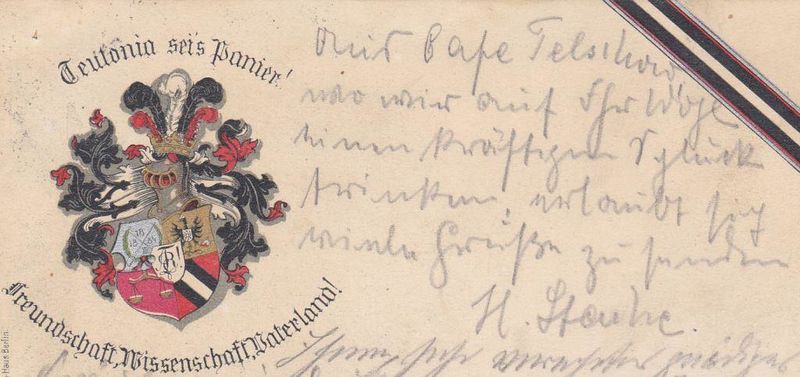 Teutonia sei's Panier!
Freundschaft, Wissenschaft, Vaterland!
Haus Berlin
Aus Cafe Telschow,
wo wir auf Ihr Wohl
einen kräftigen Schluck
trinken, erlaubt sich
viele Grüße zu senden
H.